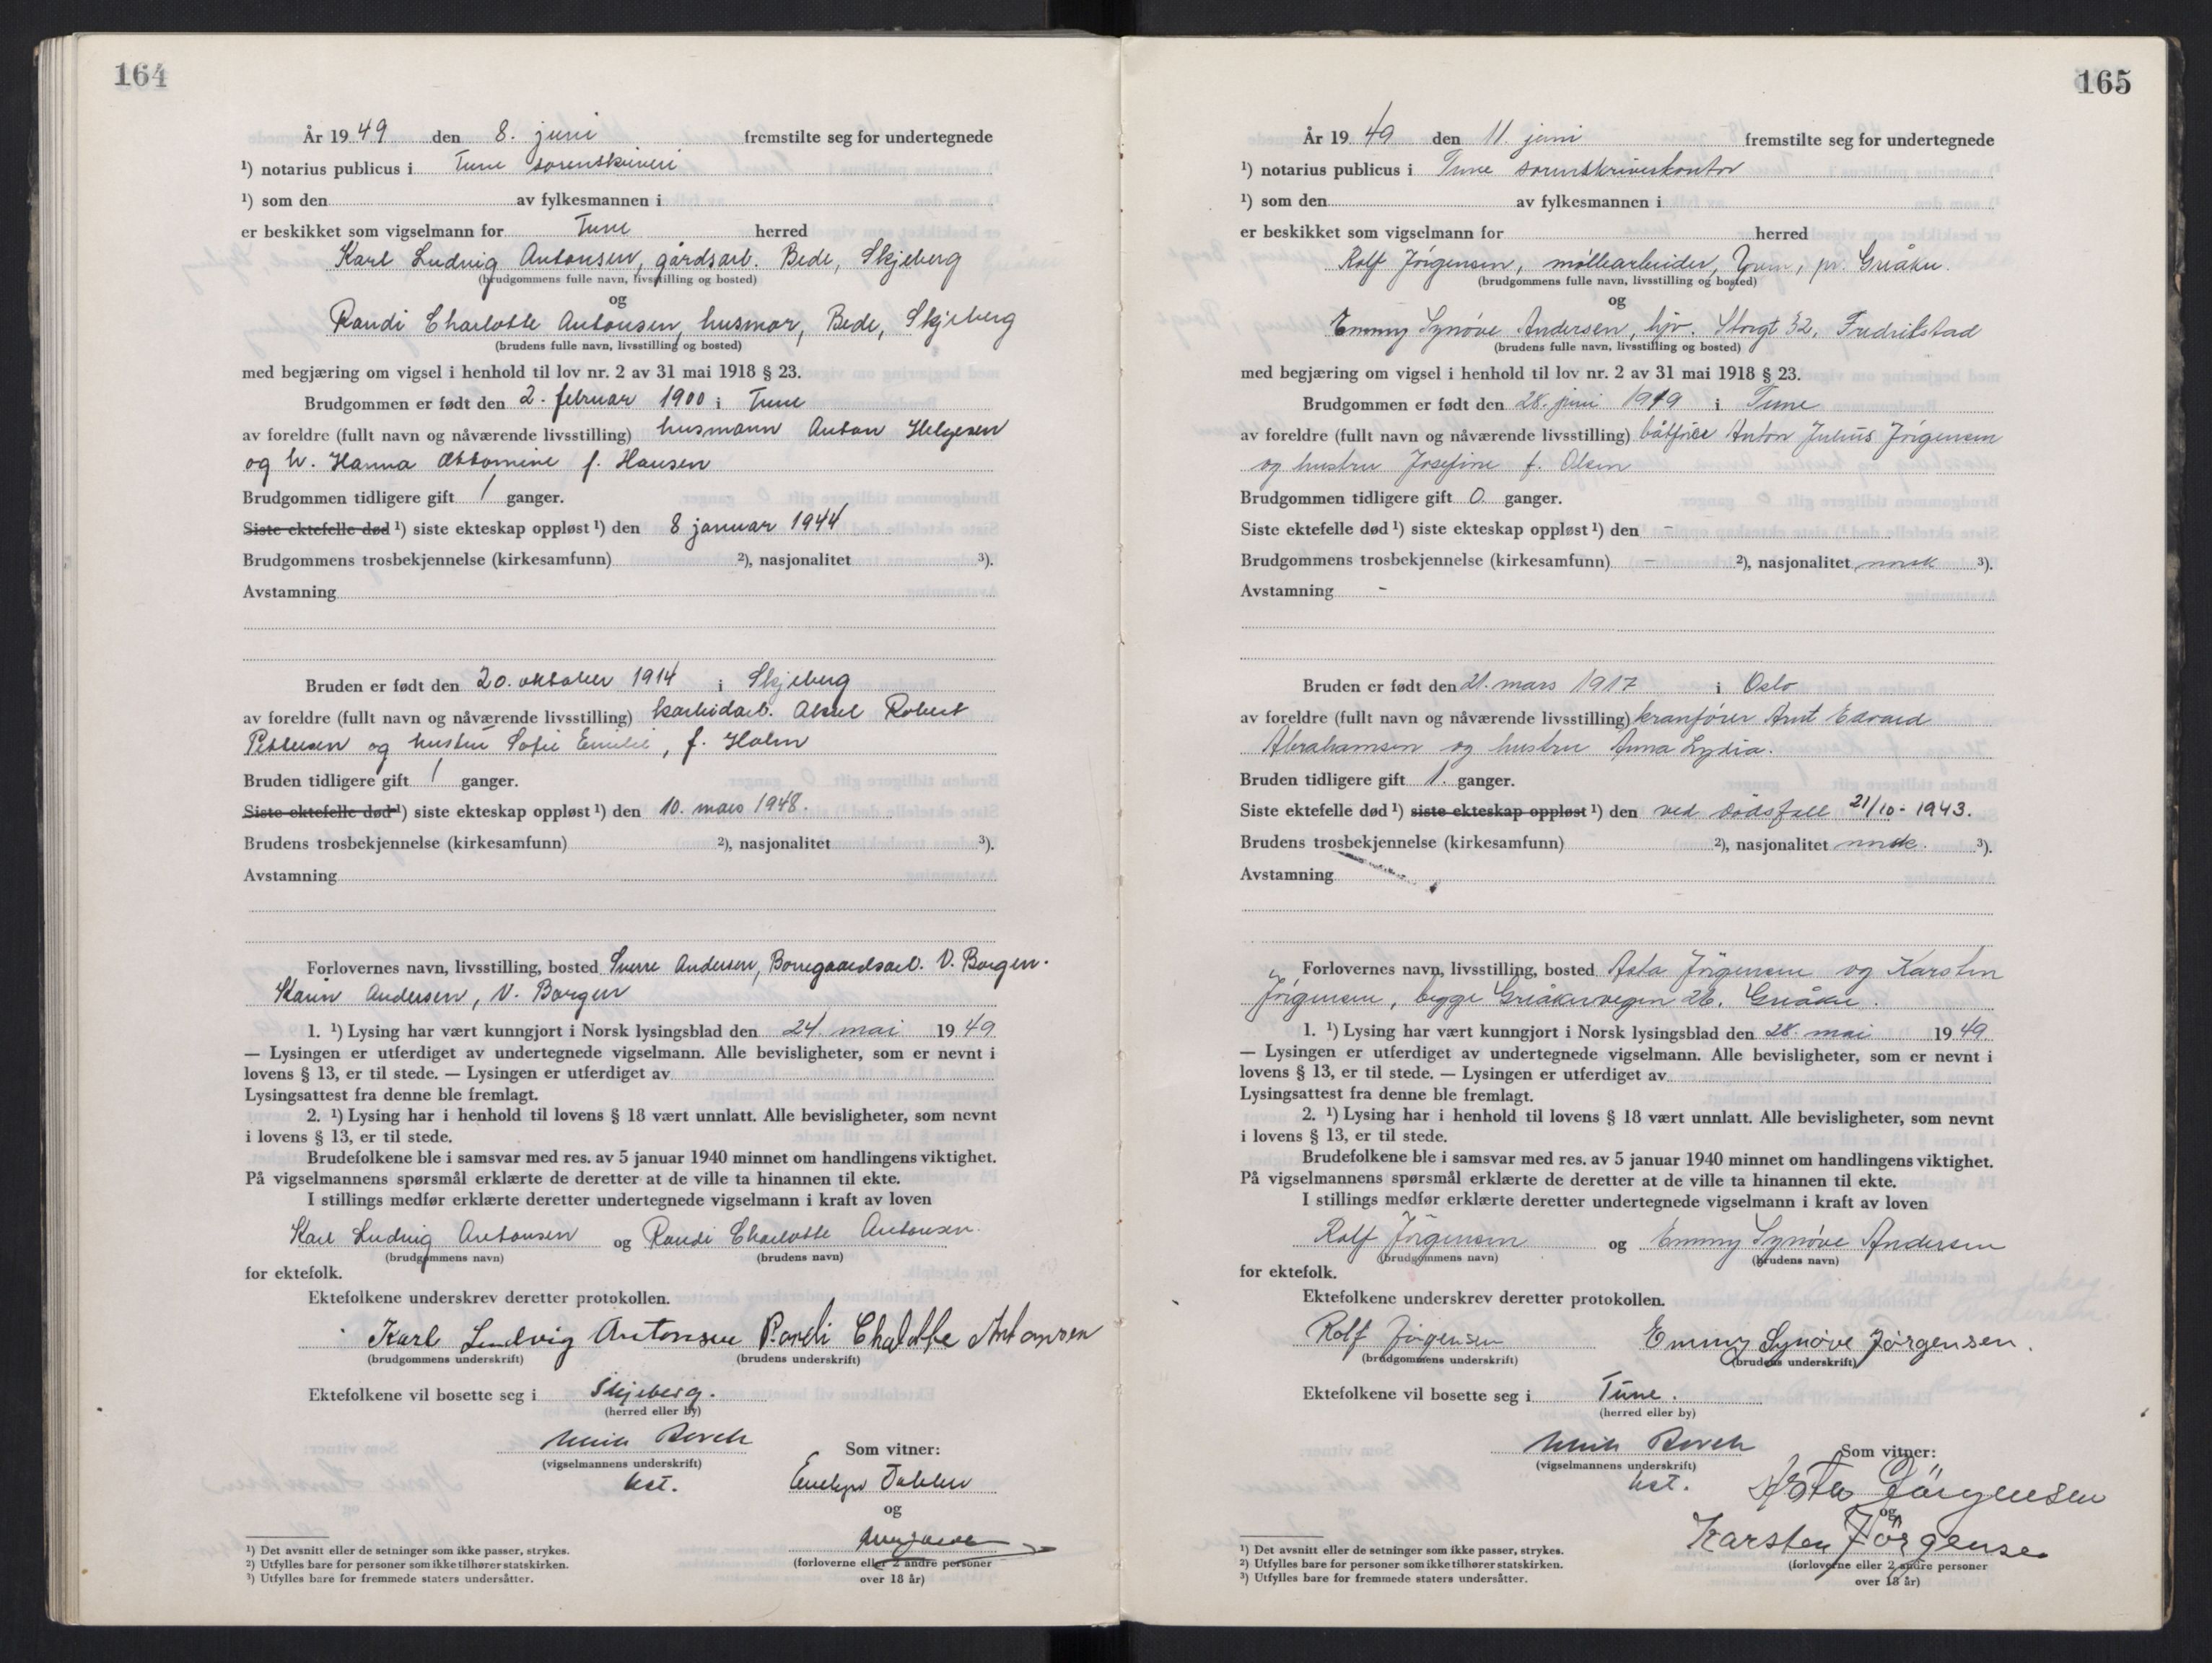 164
År 1949 den 8. juni fremstilte seg for undertegnede
¹) notarius publicus i Tune sorenskriveri
¹) som den av fylkesmannen i
er beskikket som vigselmann for Tune herred
Karl Ludvig Antonsen, gårdsarb. Bede, Skjeberg
(brudgommens fulle navn, livsstilling og bosted)
og
Randi Charlotte Antonsen, husmor, Bede, Skjeberg
(brudens fulle navn, livsstilling og bosted)
med begjæring om vigsel i henhold til lov nr. 2 av 31 mai 1918 § 23.
Brudgommen er født den 2. februar 1900 i Tune
av foreldre (fullt navn og nåværende livsstilling) husmann Anton Helgesen
og h. Hanna Ottomine f. Hansen
Brudgommen tidligere gift 1 ganger.
Siste ektefelle død ¹) siste ekteskap oppløst ¹) den 8 januar 1944
Brudgommens trosbekjennelse (kirkesamfunn) ²), nasjonalitet ³).
Avstamning
Bruden er født den 20. oktober 1914 i Skjeberg
av foreldre (fullt navn og nåværende livsstilling) karbidarb. Aksel Robert
Pettersen og hustru Sofie Emilie, f. Holm
Bruden tidligere gift 1 ganger.
Siste ektefelle død ¹) siste ekteskap oppløst ¹) den 10. mars 1948.
Brudens trosbekjennelse (kirkesamfunn) ²), nasjonalitet ³).
Avstamning
Forlovernes navn, livsstilling, bosted Sverre Andersen, Borregaardsarb. V. Borgen.
Karin Andersen, V. Borgen
1. ¹) Lysing har vært kunngjort i Norsk lysingsblad den 24. mai 1949
— Lysingen er utferdiget av undertegnede vigselmann. Alle bevisligheter, som er nevnt i
lovens § 13, er til stede. — Lysingen er utferdiget av
Lysingsattest fra denne ble fremlagt.
2. ¹) Lysing har i henhold til lovens § 18 vært unnlatt. Alle bevisligheter, som nevnt
i lovens § 13, er til stede.
Brudefolkene ble i samsvar med res. av 5 januar 1940 minnet om handlingens viktighet.
På vigselmannens spørsmål erklærte de deretter at de ville ta hinannen til ekte.
I stillings medfør erklærte deretter undertegnede vigselmann i kraft av loven
Karl Ludvig Antonsen og Randi Charlotte Antonsen.
(brudgommens navn) (brudens navn)
for ektefolk.
Ektefolkene underskrev deretter protokollen.
Karl Ludvig Antonsen Randi Chalotte Antonsen
(brudgommens underskrift) (brudens underskrift)
Ektefolkene vil bosette seg i Skjeberg.
(herred eller by)
Borch
(vigselmannens underskrift)
Som vitner:
Evelyn
og
(forloverne eller 2 andre personer
over 18 år)
¹) Det avsnitt eller de setninger som ikke passer, strykes.
²) Utfylles bare for personer som ikke tilhører statskirken.
³) Utfylles bare for fremmede staters undersåtter.
165
År 1949 den 11. juni fremstilte seg for undertegnede
¹) notarius publicus i Tune sorenskriverkontor
¹) som den av fylkesmannen i
er beskikket som vigselmann for herred
Rolf Jörgensen, möllearbeider, pr. Greåker.
(brudgommens fulle navn, livsstilling og bosted)
og
Emmy Synöve Andersen, hjv. Storgt 32, Fredrikstad
(brudens fulle navn, livsstilling og bosted)
med begjæring om vigsel i henhold til lov nr. 2 av 31 mai 1918 § 23.
Brudgommen er født den 28. juni 1919 i Tune
av foreldre (fullt navn og nåværende livsstilling) båtförer Anton Julius Jörgensen
og hustru Josefine f. Olsen
Brudgommen tidligere gift 0 ganger.
Siste ektefelle død ¹) siste ekteskap oppløst ¹) den -
Brudgommens trosbekjennelse (kirkesamfunn) - ²), nasjonalitet norsk ³).
Avstamning -
Bruden er født den 21. mars 1917 i Oslo
av foreldre (fullt navn og nåværende livsstilling) kranförer Arnt Edvard
Abrahamsen og hustru Anna Lydia.
Bruden tidligere gift 1. ganger.
Siste ektefelle død ¹) siste ekteskap oppløst ¹) den ved dödsfall 21/10 - 1943.
Brudens trosbekjennelse (kirkesamfunn) ²), nasjonalitet norsk. ³).
Avstamning
Forlovernes navn, livsstilling, bosted Asta Jörgensen og Karsten
Jörgensen, begge Greåkervegen 26. Greåker.
1. ¹) Lysing har vært kunngjort i Norsk lysingsblad den 28. mai 1949
— Lysingen er utferdiget av undertegnede vigselmann. Alle bevisligheter, som er nevnt i
lovens § 13, er til stede. — Lysingen er utferdiget av
Lysingsattest fra denne ble fremlagt.
2. ¹) Lysing har i henhold til lovens § 18 vært unnlatt. Alle bevisligheter, som nevnt
i lovens § 13, er til stede.
Brudefolkene ble i samsvar med res. av 5 januar 1940 minnet om handlingens viktighet.
På vigselmannens spørsmål erklærte de deretter at de ville ta hinannen til ekte.
I stillings medfør erklærte deretter undertegnede vigselmann i kraft av loven
Rolf Jörgensen og Emmy Synöve Andersen
(brudgommens navn) (brudens navn)
for ektefolk.
Ektefolkene underskrev deretter protokollen.
Rolf Jörgensen Emmy Synöve Jörgensen.
(brudgommens underskrift) (brudens underskrift)
Ektefolkene vil bosette seg i Tune.
(herred eller by)
Borch
(vigselmannens underskrift)
Som vitner:
Asta Jörgensen
og
Karsten Jörgensen
(forloverne eller 2 andre personer
over 18 år)
¹) Det avsnitt eller de setninger som ikke passer, strykes.
²) Utfylles bare for personer som ikke tilhører statskirken.
³) Utfylles bare for fremmede staters undersåtter.